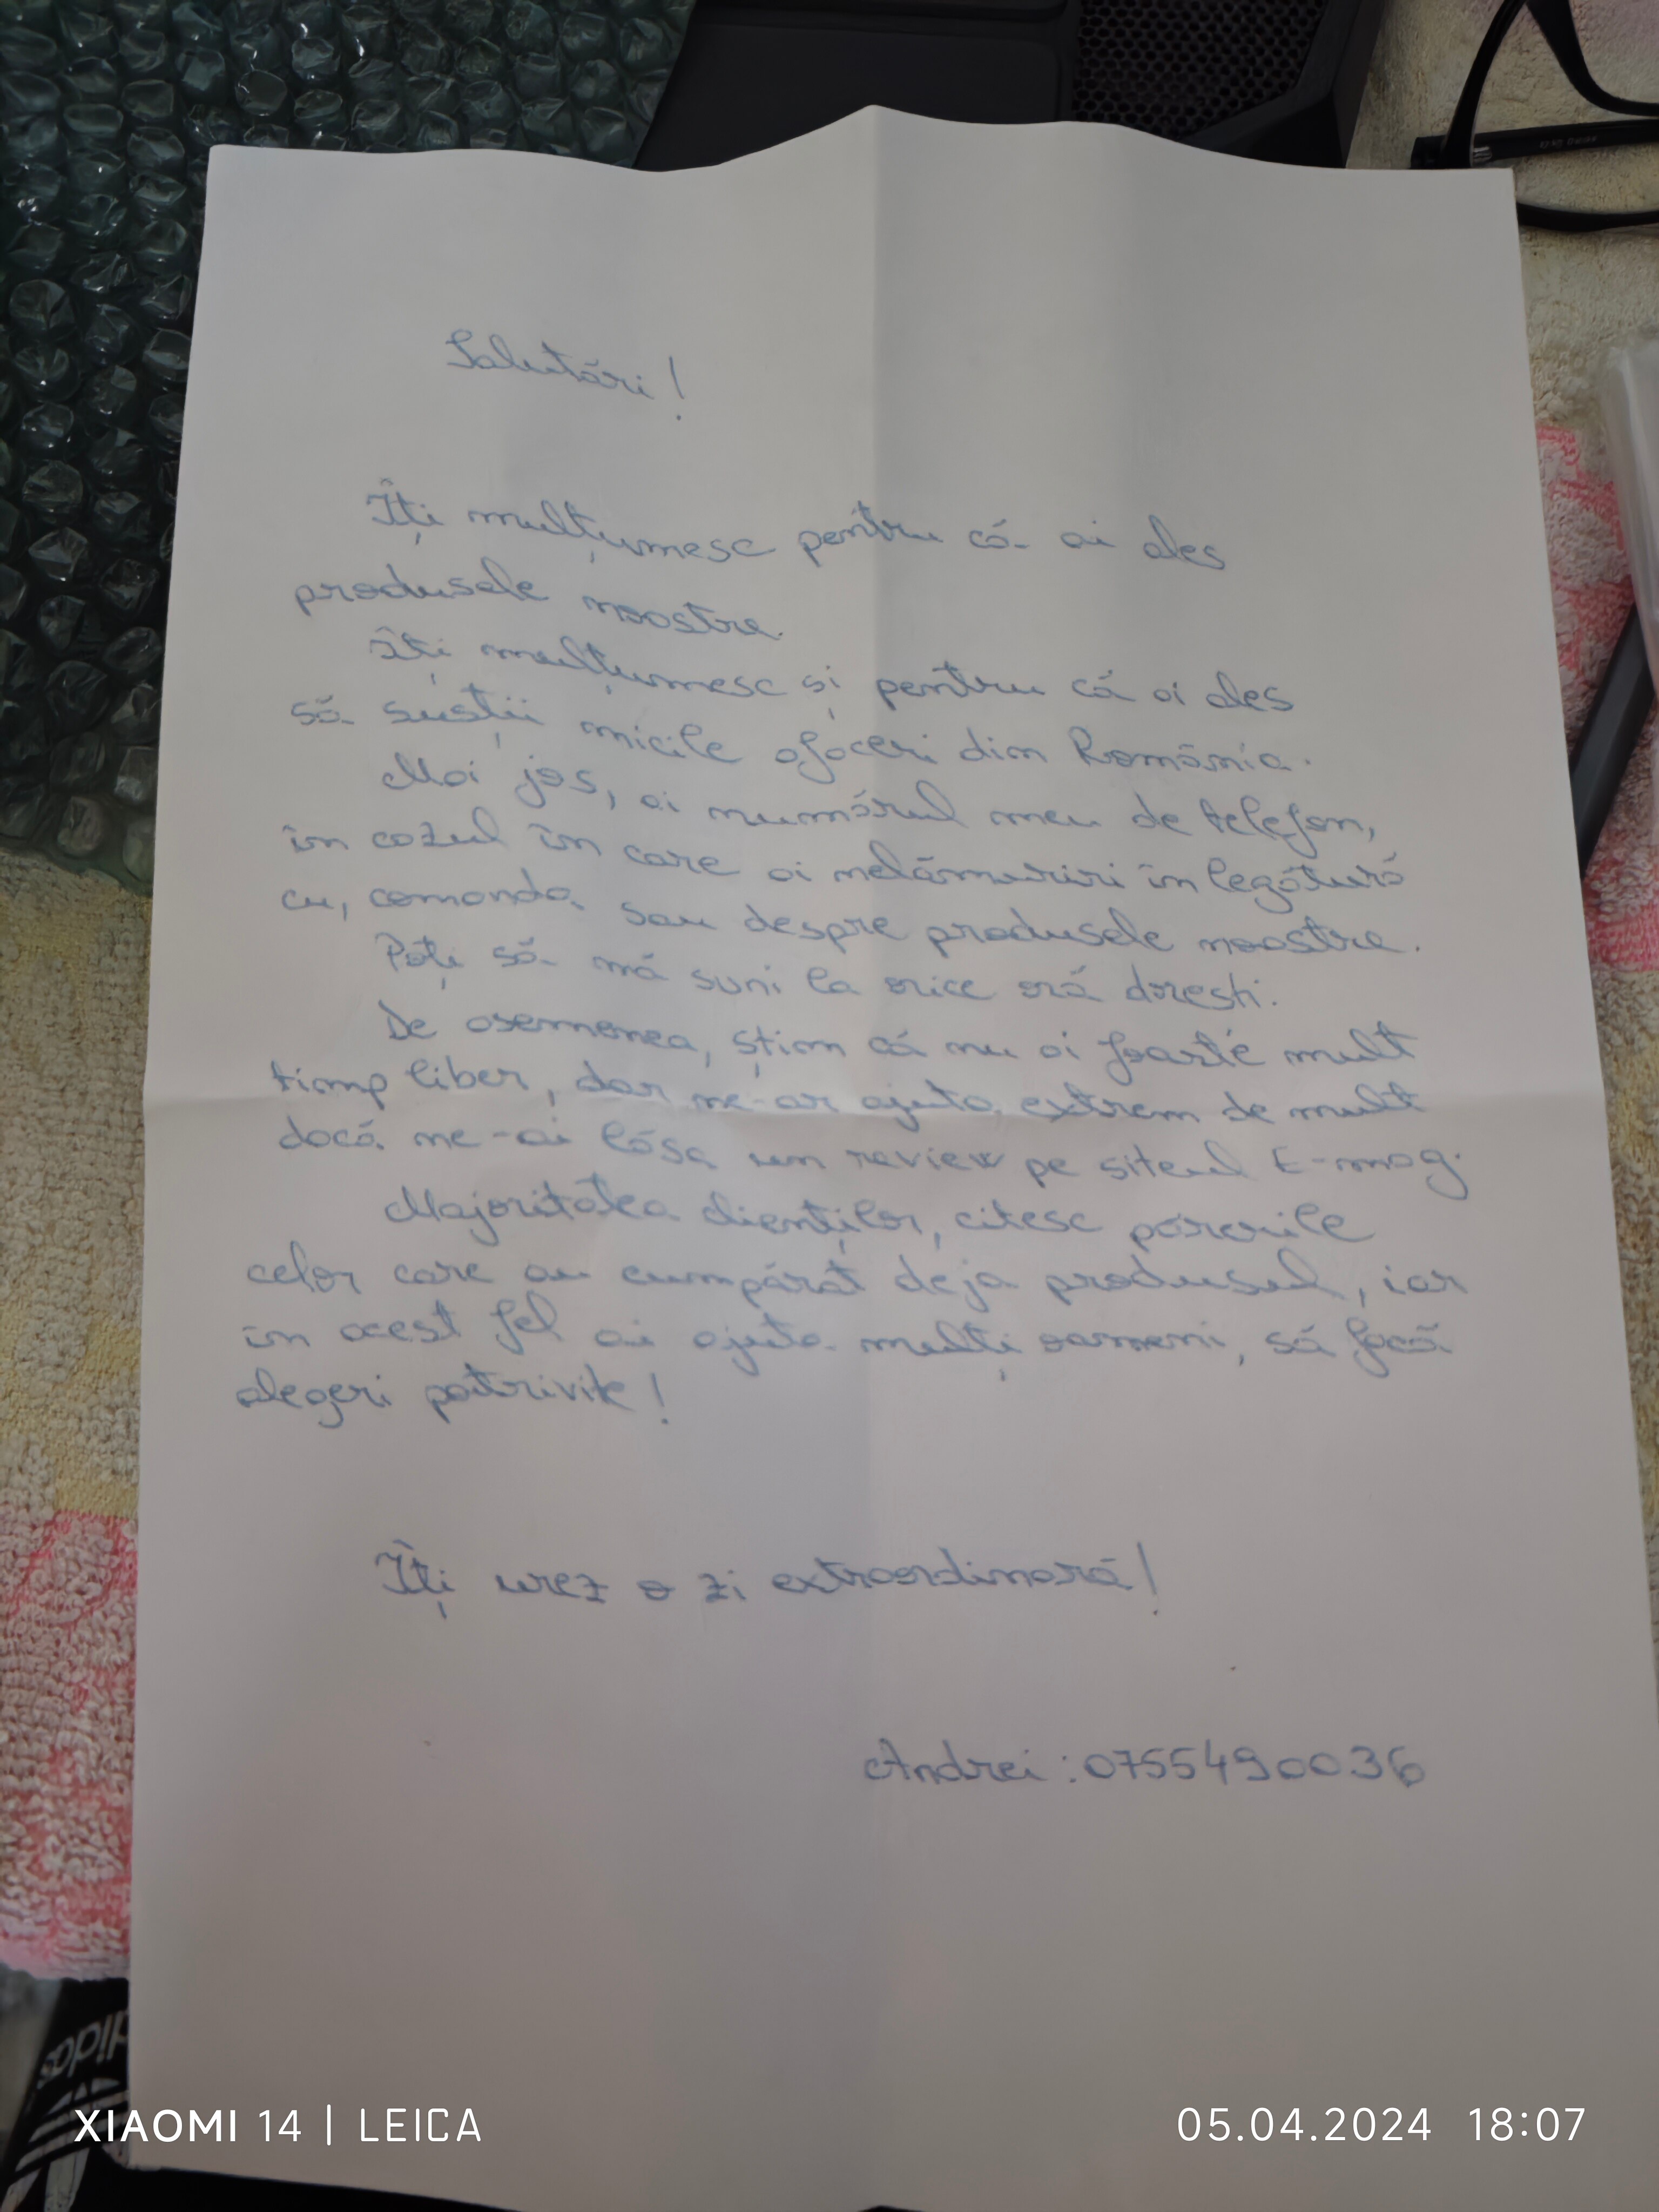 Salutări!
Îți mulțumesc pentru că ai ales
produsele noastre.
Îți mulțumesc și pentru că ai ales
să susții micile afaceri din România.
Mai jos, ai numărul meu de telefon,
în cazul în care ai nelămuriri în legătură
cu, comanda sau despre produsele noastre.
Poți să mă suni la orice oră dorești.
De asemenea, știm că nu ai foarte mult
timp liber, dar ne-ar ajuta extrem de mult
dacă ne-ai lăsa un review pe siteul E-mag.
Majoritatea clienților, citesc părerile
celor care au cumpărat deja produsul, iar
în acest fel ai ajuta mulți oameni, să facă
alegeri potrivite!
Îți urez o zi extraordinară!
Andrei : 0755490036
XIAOMI 14 | LEICA
05.04.2024 18:07